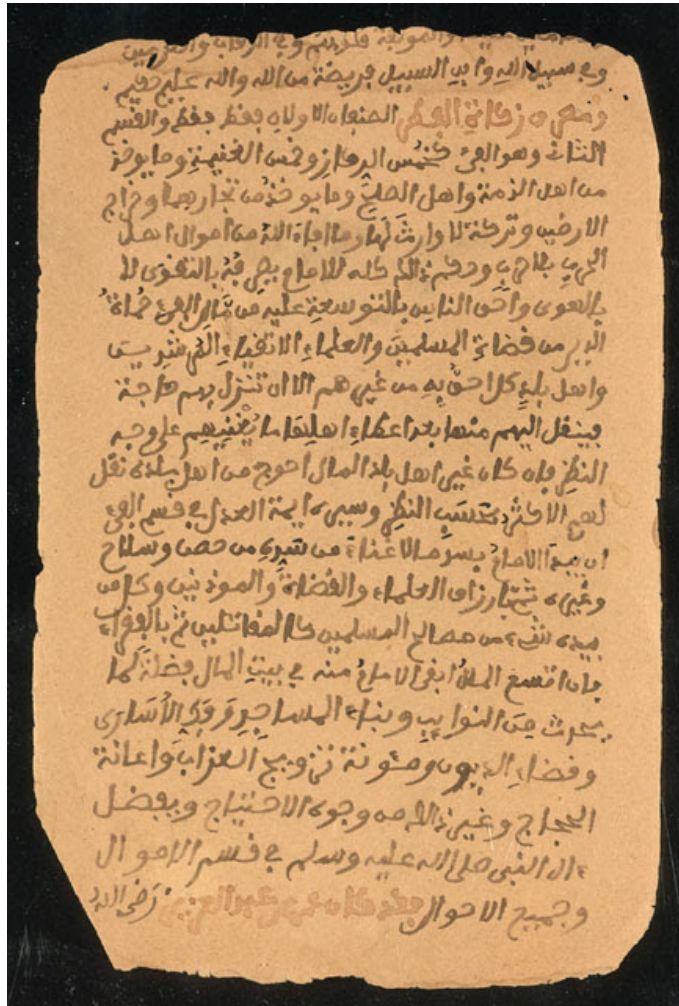 والمؤلفة قلوبهم وفي الرقاب والغرمين
وفي سبيل الله وابن السبيل فريضة من الله والله عليم حكيم
ومصرف زكاة الفطر الصنفان الاولان فقط فقط والقسم
الثاني وهو الفيء كخمس الركاز وخمس الغنيمة وما يوخذ
من اهل الذمة واهل الصلح وما يوخذ من تجارهما وخراج
الارضين وتركة لا وارث لها وما افاء الله من اموال اهل
الحرب بلا حرب وحكم ذلك كله للامام يصرفه بالتقوى لا
بالهوى واحق الناس بالتوسعة عليه من مال الفيء حماة
الدين من قضاة المسلمين والعلماء الاتقياء
واهل بلد كل احق به من غيرهم الا ان تنزل بهم حاجة
فينقل اليهم منها بعد اعطاء اهلها ما يغنيهم على وجه
النظر فان كان غير اهل بلد المال احوج من اهل بلده نقل
لهم الاكثر بحسب النظر وسيرة ايمة العدل في قسم الفيء
ان يبدا الامام بسد ما لا غناء من سده من حصن وسلاح
وغيره ثم بارزاق العلماء والقضاة والموذنين وكل من
بيده شيء من مصالح المسلمين كالمقاتلين ثم بالفقراء
فان اتسع المال ابقى الامام منه في بيت المال فضلة لما
يحدث من النوايب وبناء المساجد وفك الأسارى
وقضاء الديون ومئونة تزويج العزاب واعانة
الحجاج وغير ذلك من وجوه الاحتياج ويفضل
ءال النبي صلى الله عليه وسلم في قسم الاموال
وجميع الاحوال فقد كان عمر بن عبد العزيز رضي الله